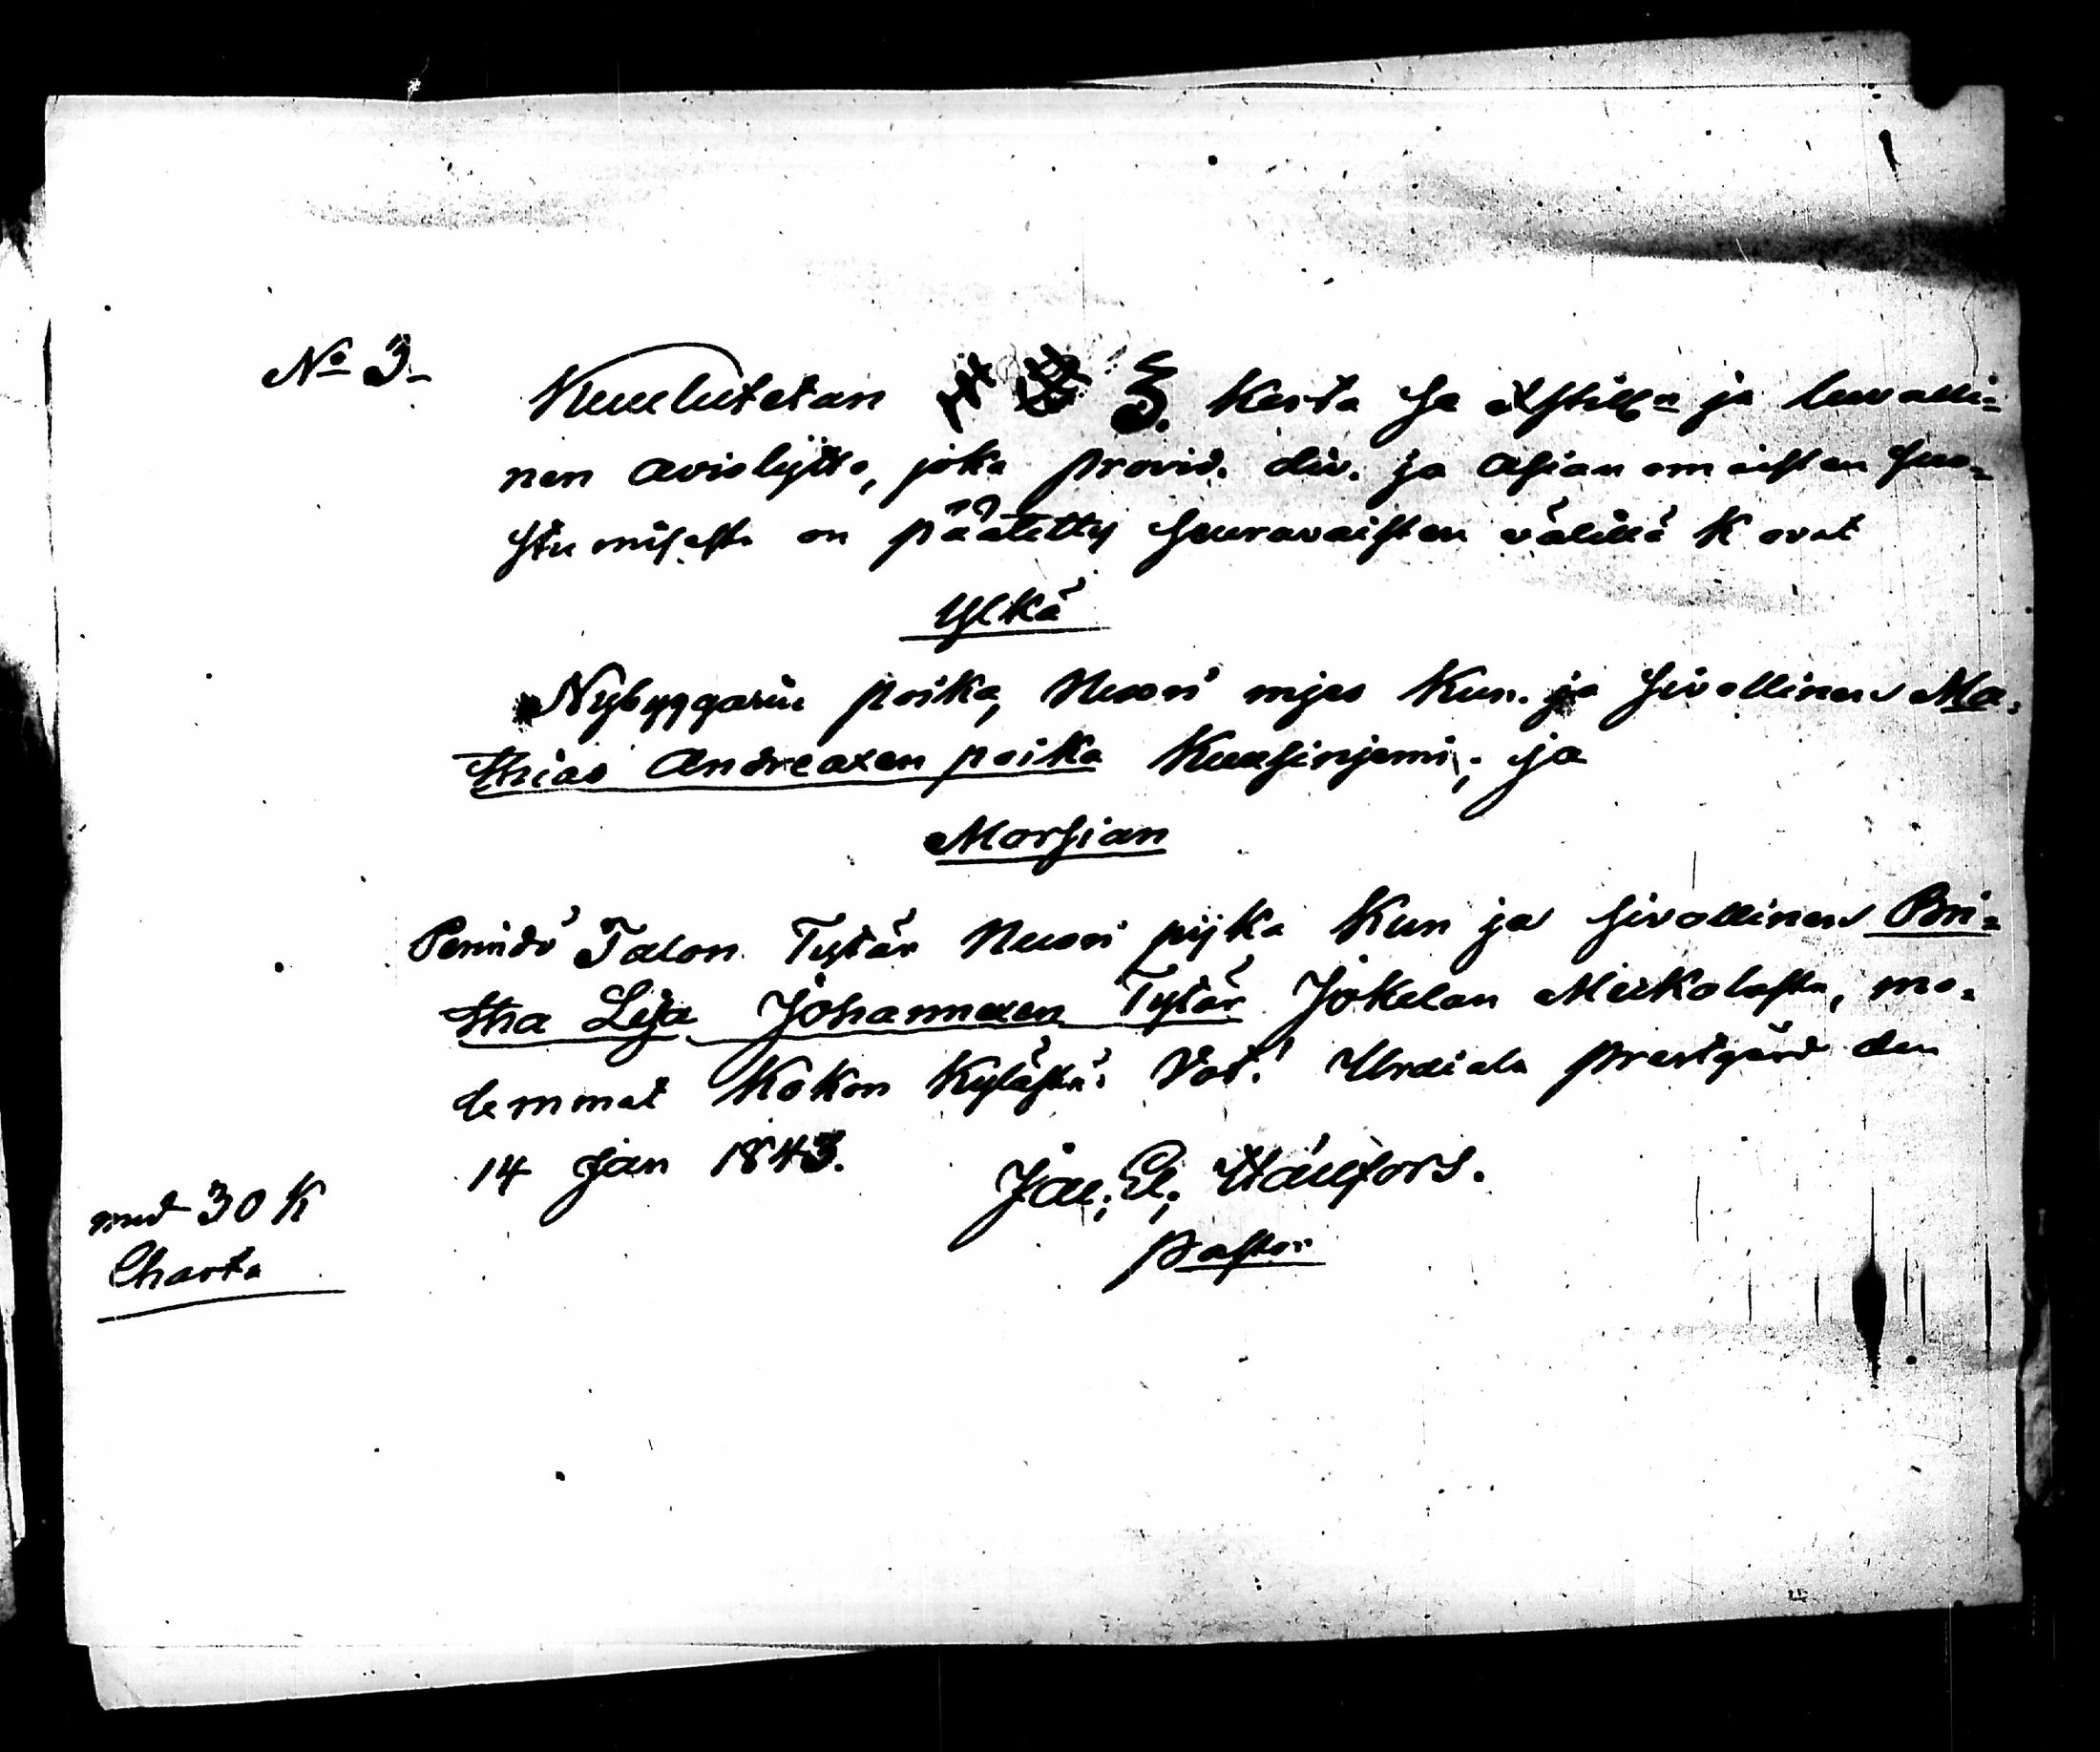 No 3.
Kuulutetan 3. Kerta se Xstillen ja luvalli-
nen avioliјtto, joka provid. div. ja asianomaisten suo-
stumisesta on päätetty seuravaisten välillä k ovat
Ylkä
Nybyggarin poika, Nuori mjes Kun. ja sivollinen Ma-
thias Andreaxen poika Kuusinjemi; ja
Morsian
Perindö Talon Tytär Nuori pijka Kun ja sivollinen Bri-
tha Lisa Johannexen Tytär Jokelan Meskolasta, mo-
lemmat Kokon Kylästä. Vot! Urdiala prestgård den
14 Jan 1843.
Jac. El. Hällfors.
Pastor
med 30 K
Charta